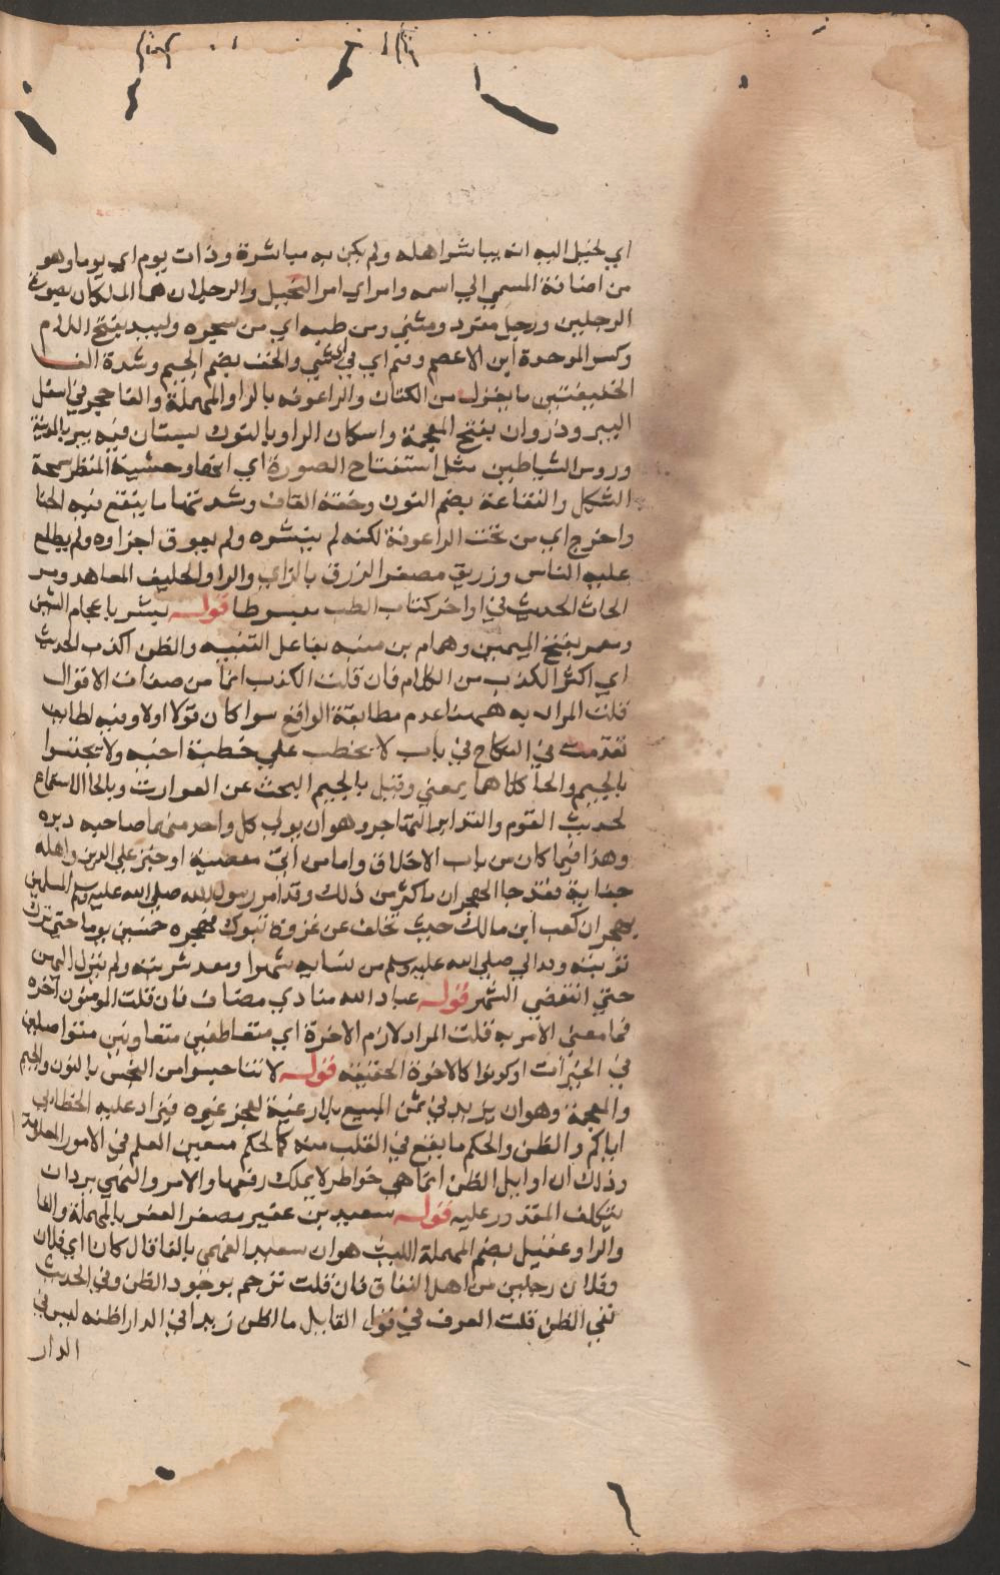 اي يخيل اليه انه يباشر اهله ولم يكن به مباشرة وذات يوم اي يوما وهو
من اضافة المسمي الي اسمه وامراي امر التخييل والرجلان هما الملكان بصورة
الرجلين ورجل مفرد ومثني ومن طبه اي من سحره ولبيد بفتح اللام
وكسر الموحدة ابن الاعصم وفيم اي في اي شي والجف بضم الجيم وشدة الفا
ما يغزل من الكتان والراعوفه بالرا والمهملة والفا حجر في اسفل
البير وذروان بفتح المعجمة واسكان الرا وبالنون بستان فيه بير بالمدينة
وروس الشياطين مثل استفتاح الصورة اي انها وحشية المنظر سمجة
الشكل والنقاعة بضم النون وخفة القاف وشدتها ما ينقع فيه الحنا
واخرج اي من تحت الراعوفة لكنه لم ينشره ولم يفرق اجزاوه ولم يطلع
عليه الناس وزريق مصغر الزرق بالزاي والرا والحليف المعاهد ومر
الحديث في اواخر كتاب الطب مبسوطا قوله بشر باعجام الشين
ومعمر بفتح الميمين وهمام بن منبه بفاعل التنبيه والظن اكذب الحديث
اي اكثر الكذب من الكلام فان قلت الكذب انما من صفات الاقوال
قلت المراد به هنا عدم مطابقة الواقع سوا كان قولا اولا وفيه لطايف
تقدمت في النكاح في باب لا يخطب علي خطبة اخيه ولا تجسسوا
بالجيم والحا كلاهما بمعني وقيل بالجيم البحث عن العورات وبالحا الاستماع
لحديث القوم والتدابر التهاجر وهو ان يولي كل واحد منهما صاحبه دبره
وهذا فيما كان من باب الاخلاق واما من اتي معصية او جني علي الدين واهله
جناية فقد جا الهجران باكثر من ذلك وقد امر رسول الله صلي الله عليه وسلم المسلمين
بهجران كعب ابن مالك حيث تخلف عن غزوة تبوك فهجره خمسين يوما حتي نزلت
توبته والي صلي الله عليه وسلم من نسايه شهرا وصعد مشربته ولم ينزل اليهن
حتي انقضي الشهر قوله عباد الله منادي مضاف فان قلت المومنون اخوه
فما معني الامر به قلت المراد لازم الاخوة اي متعاطفين متعاونين متواصلين
في الخيرات او كونوا كالاخوة الحقيقيه قوله لا تناجشوا من النجش بالنون والجيم
والمعجمة وهو ان يزيد في ثمن المبيع بلا رغبة ليغر غيره فيزاد عليه الخطابي
اياكم والظن والحكم ما يقع في القلب منه كالحكم بيقين العلم في الامور المعلومة
وذلك ان اوايل الظن انما هي خواطر لا يملك رفعها والامر والنهي يردان
بتكلف المقدور عليه قوله سعيد بن عفير مصغر العفر بالمهملة والفا
والرا وعقيل بضم المهملة الليث هو ابن سعد الفهمي بالفا قال كان اي فلان
وفلان رجلين من اهل النفاق فان قلت ترجم بوجود الظن وفي الحديث
نفي الظن قلت العرف في قول القايل ما اظن زيدا في الدار اظنه ليس في
الدار